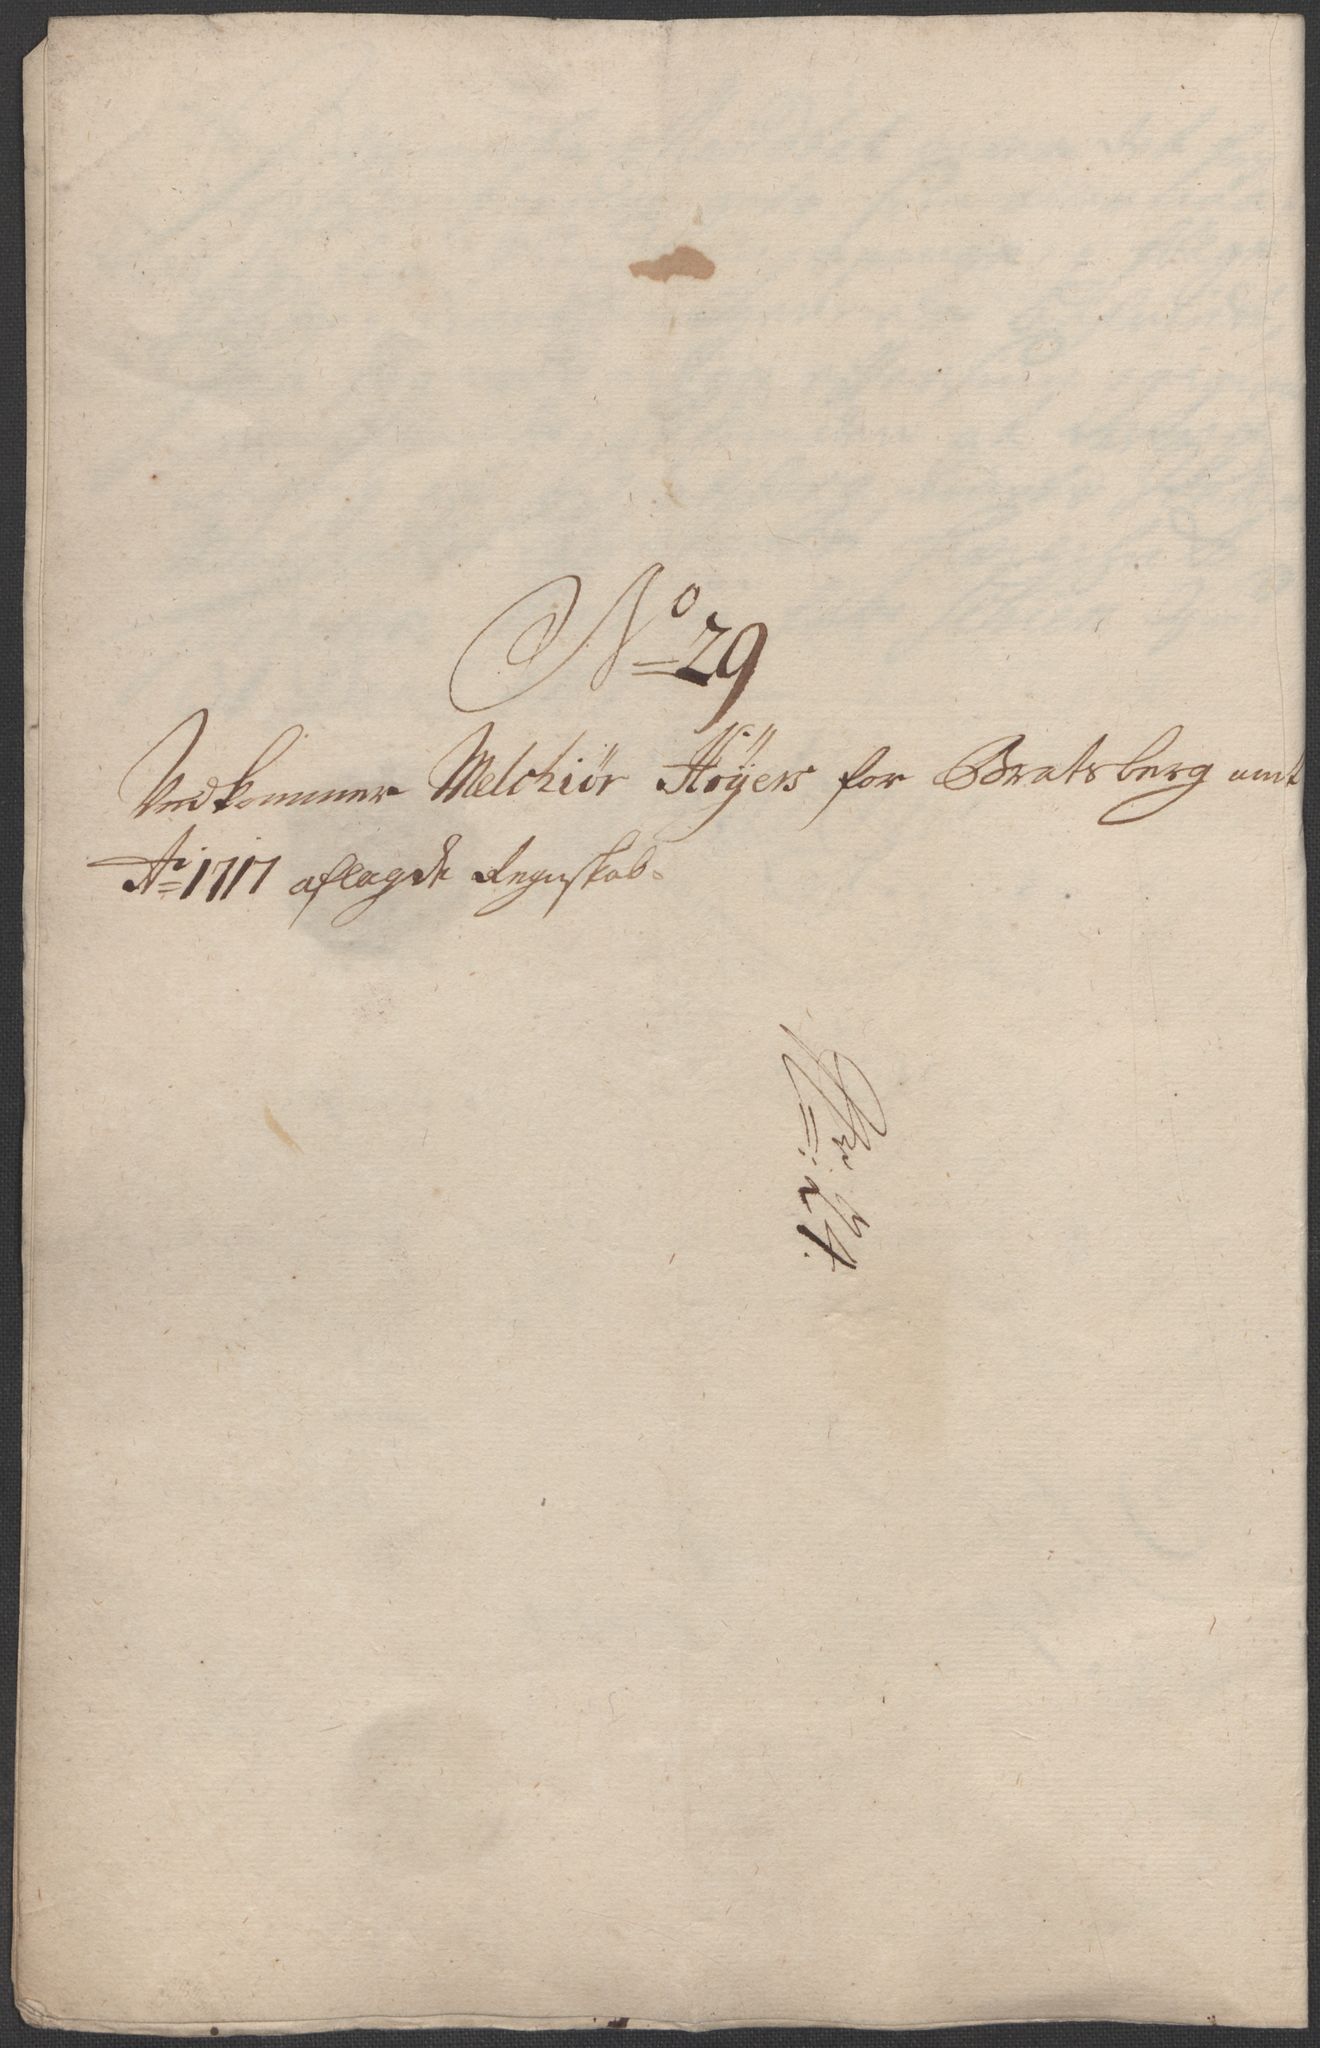 No 29
Vedkommer Melchiör Höÿers for Bratsberg amt
Ao 1717 aflagde Regnskab.